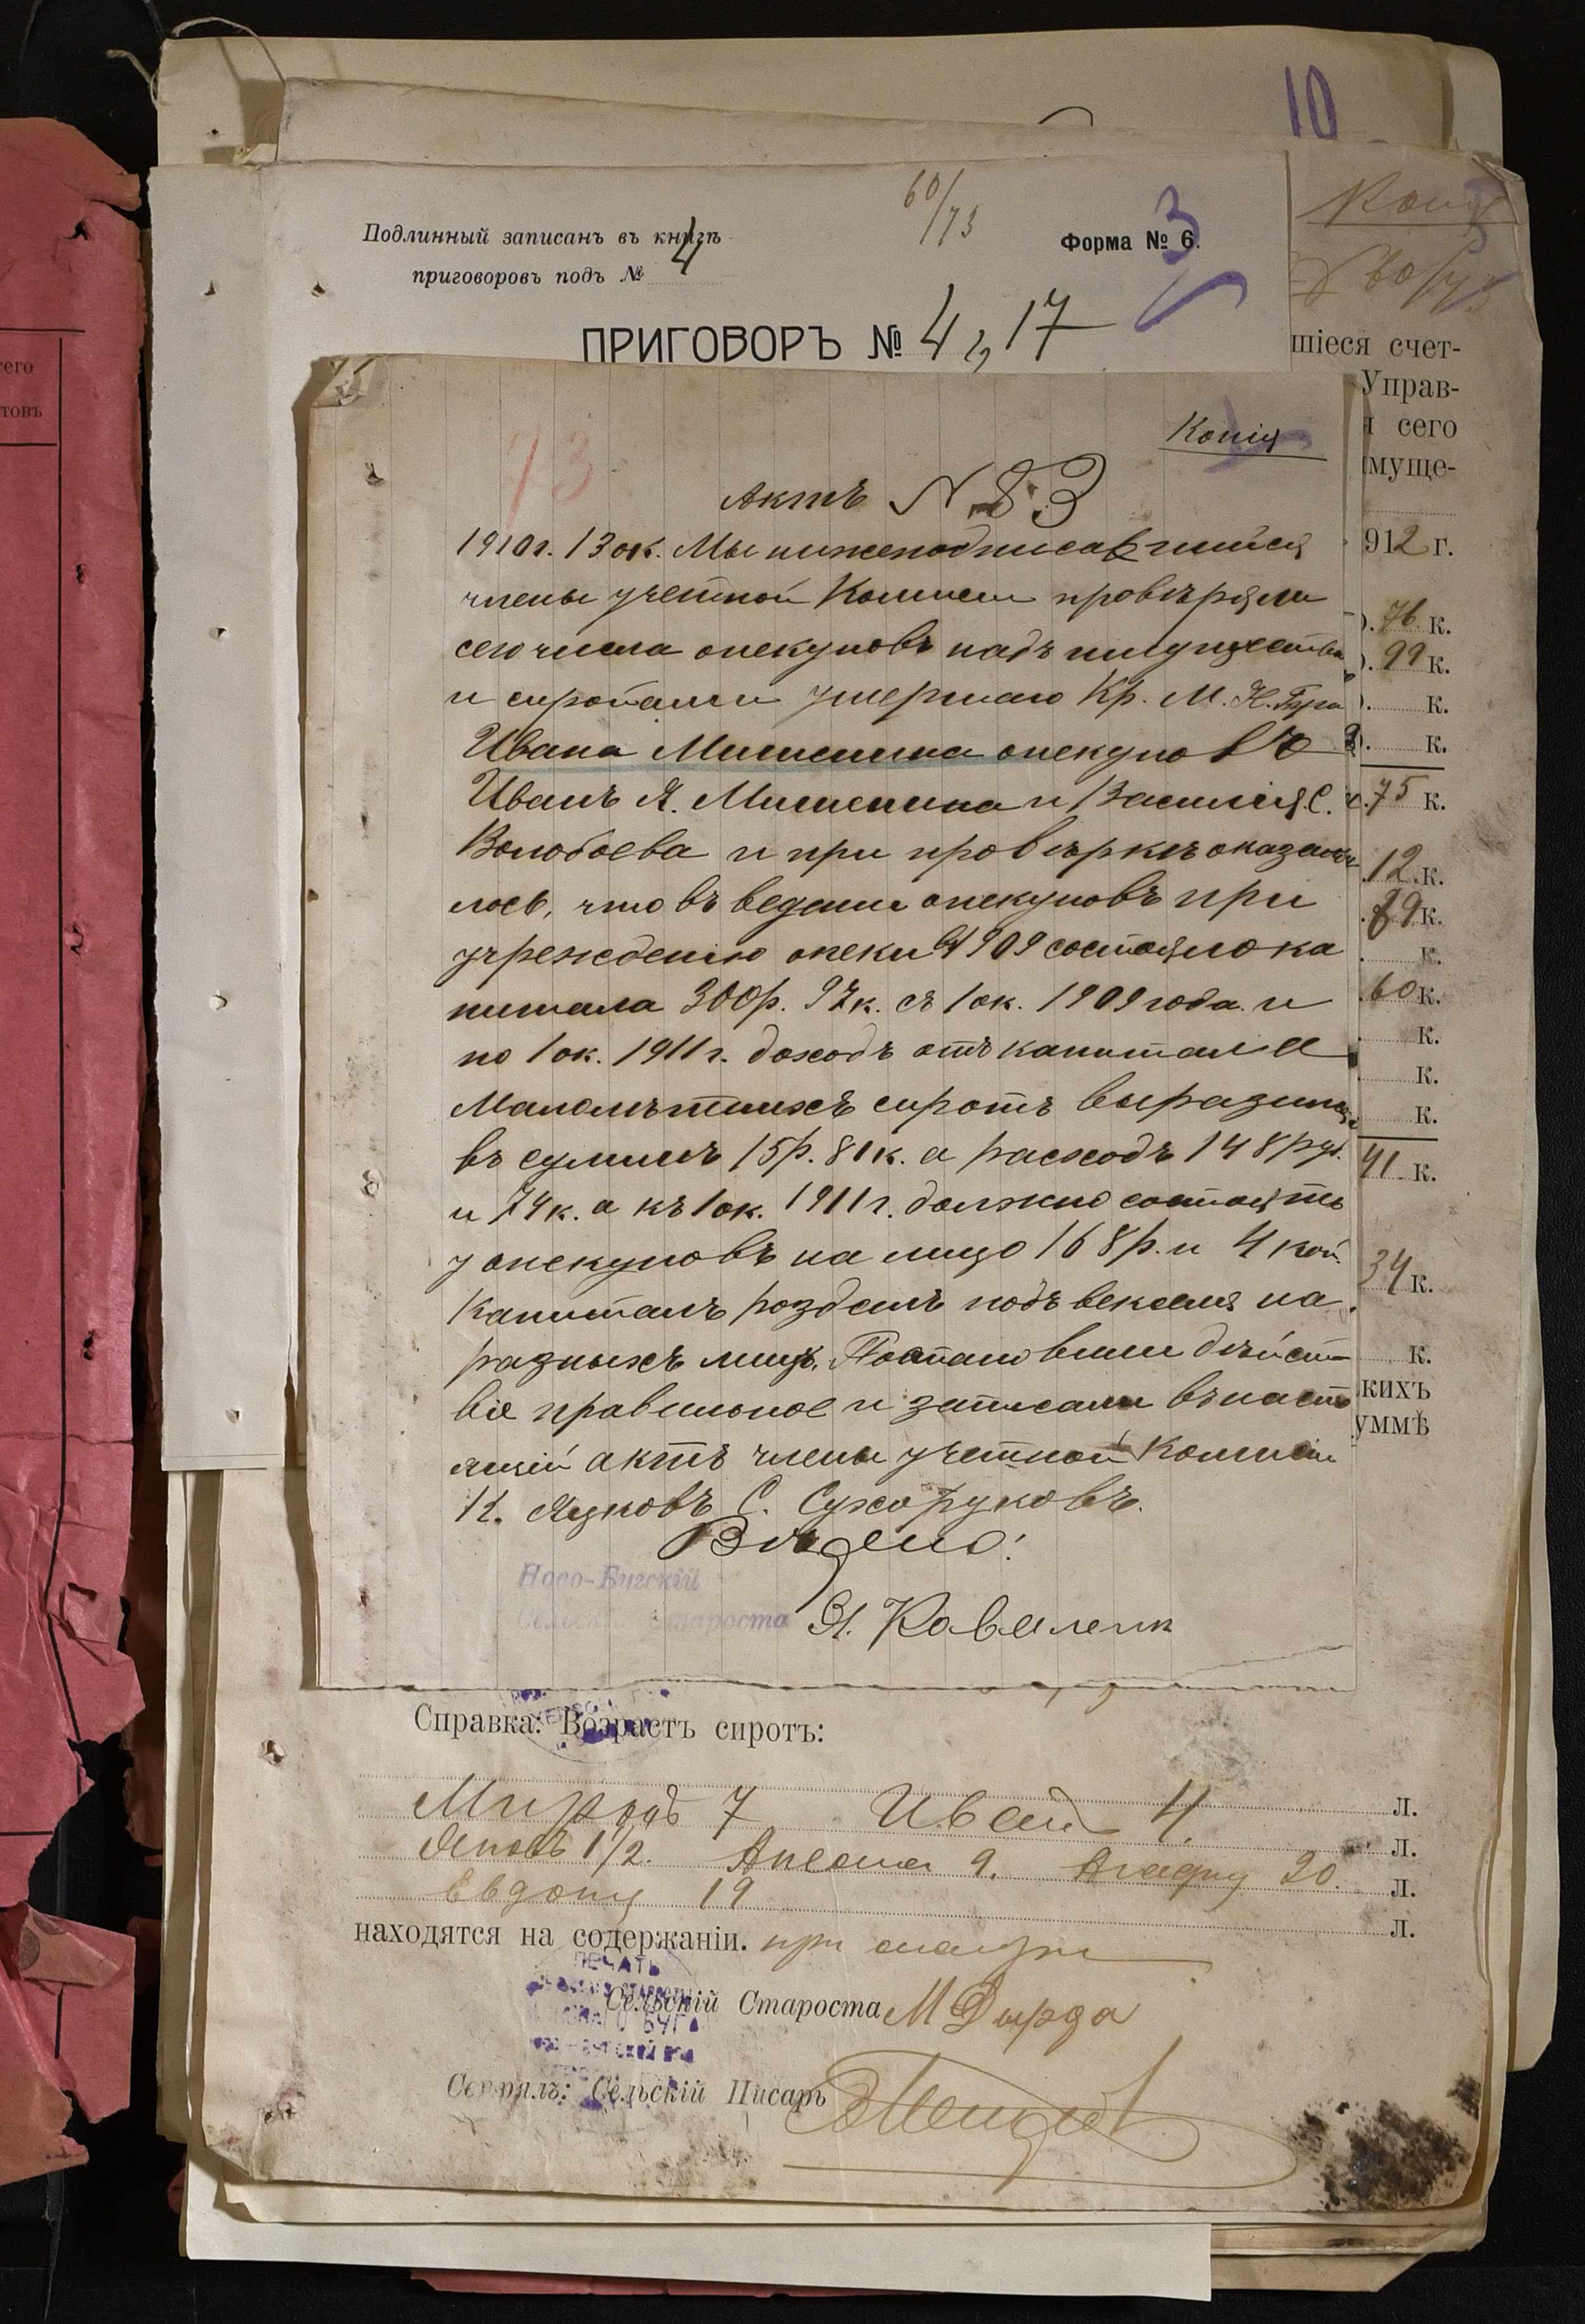 10
60/73
Подлинный записанъ въ книгѣ
приговоровъ подъ № 4
Форма № 6.
3
ПРИГОВОРЪ № 4, 17
Копія
шіеся счет-
Управ-
сего
муще-
912 г.
76 к.
99 к.
к.
к.
75 к.
12 к.
89 к.
к.
60 к.
к.
к.
к.
41 к.
34 к.
к.
кихъ
уммѣ
73
Копія
Актъ № 83
1910 г. 13 ок. Мы нижеподписавшийся
члены учетной Комисеи провѣряли
сего числа опекуновъ надъ имуществ
и сиротами умершаго Кр. М. Н. Буга
Ивана Мишенина опекуновъ
Иванъ Я. Мишенина и Василія С.
Волобоева и при провѣркѣ оказа
лось, что въ ведении опекуновъ при
учреждению опеки 1909 состояло ка
питала 300 р. 97 к. съ 1 ок. 1909 года и
по 1 ок. 1911 г. доходъ отъ капитала
Малолѣтнихъ сиротъ выразился
въ суммѣ 15 р. 81 к. а расходъ 148 руб.
и 74 к. а къ 1 ок. 1911 г. должно состоять
у опекуновъ на лицо 168 р. и 4 коп.
Капиталъ розданъ подъ векселя на
разныхъ лицъ. Постановили дѣйст-
віе правильное и записали въ насто
ящій актъ члены учетной Комисіи
К. Яцковъ С. Сухоруковъ.
Видено:
Ново-Бугскій
Сельскій Староста Коваленк
Справка: Возрастъ сиротъ:
7 Иван 4. л.
Яковъ 1/2. 9. 20. л.
19 л.
л.
находятся на содержаніи. при матери
ПЕЧАТЬ
Сельскій Староста М Дырда
Свѣрялъ: Сельскій Писарь